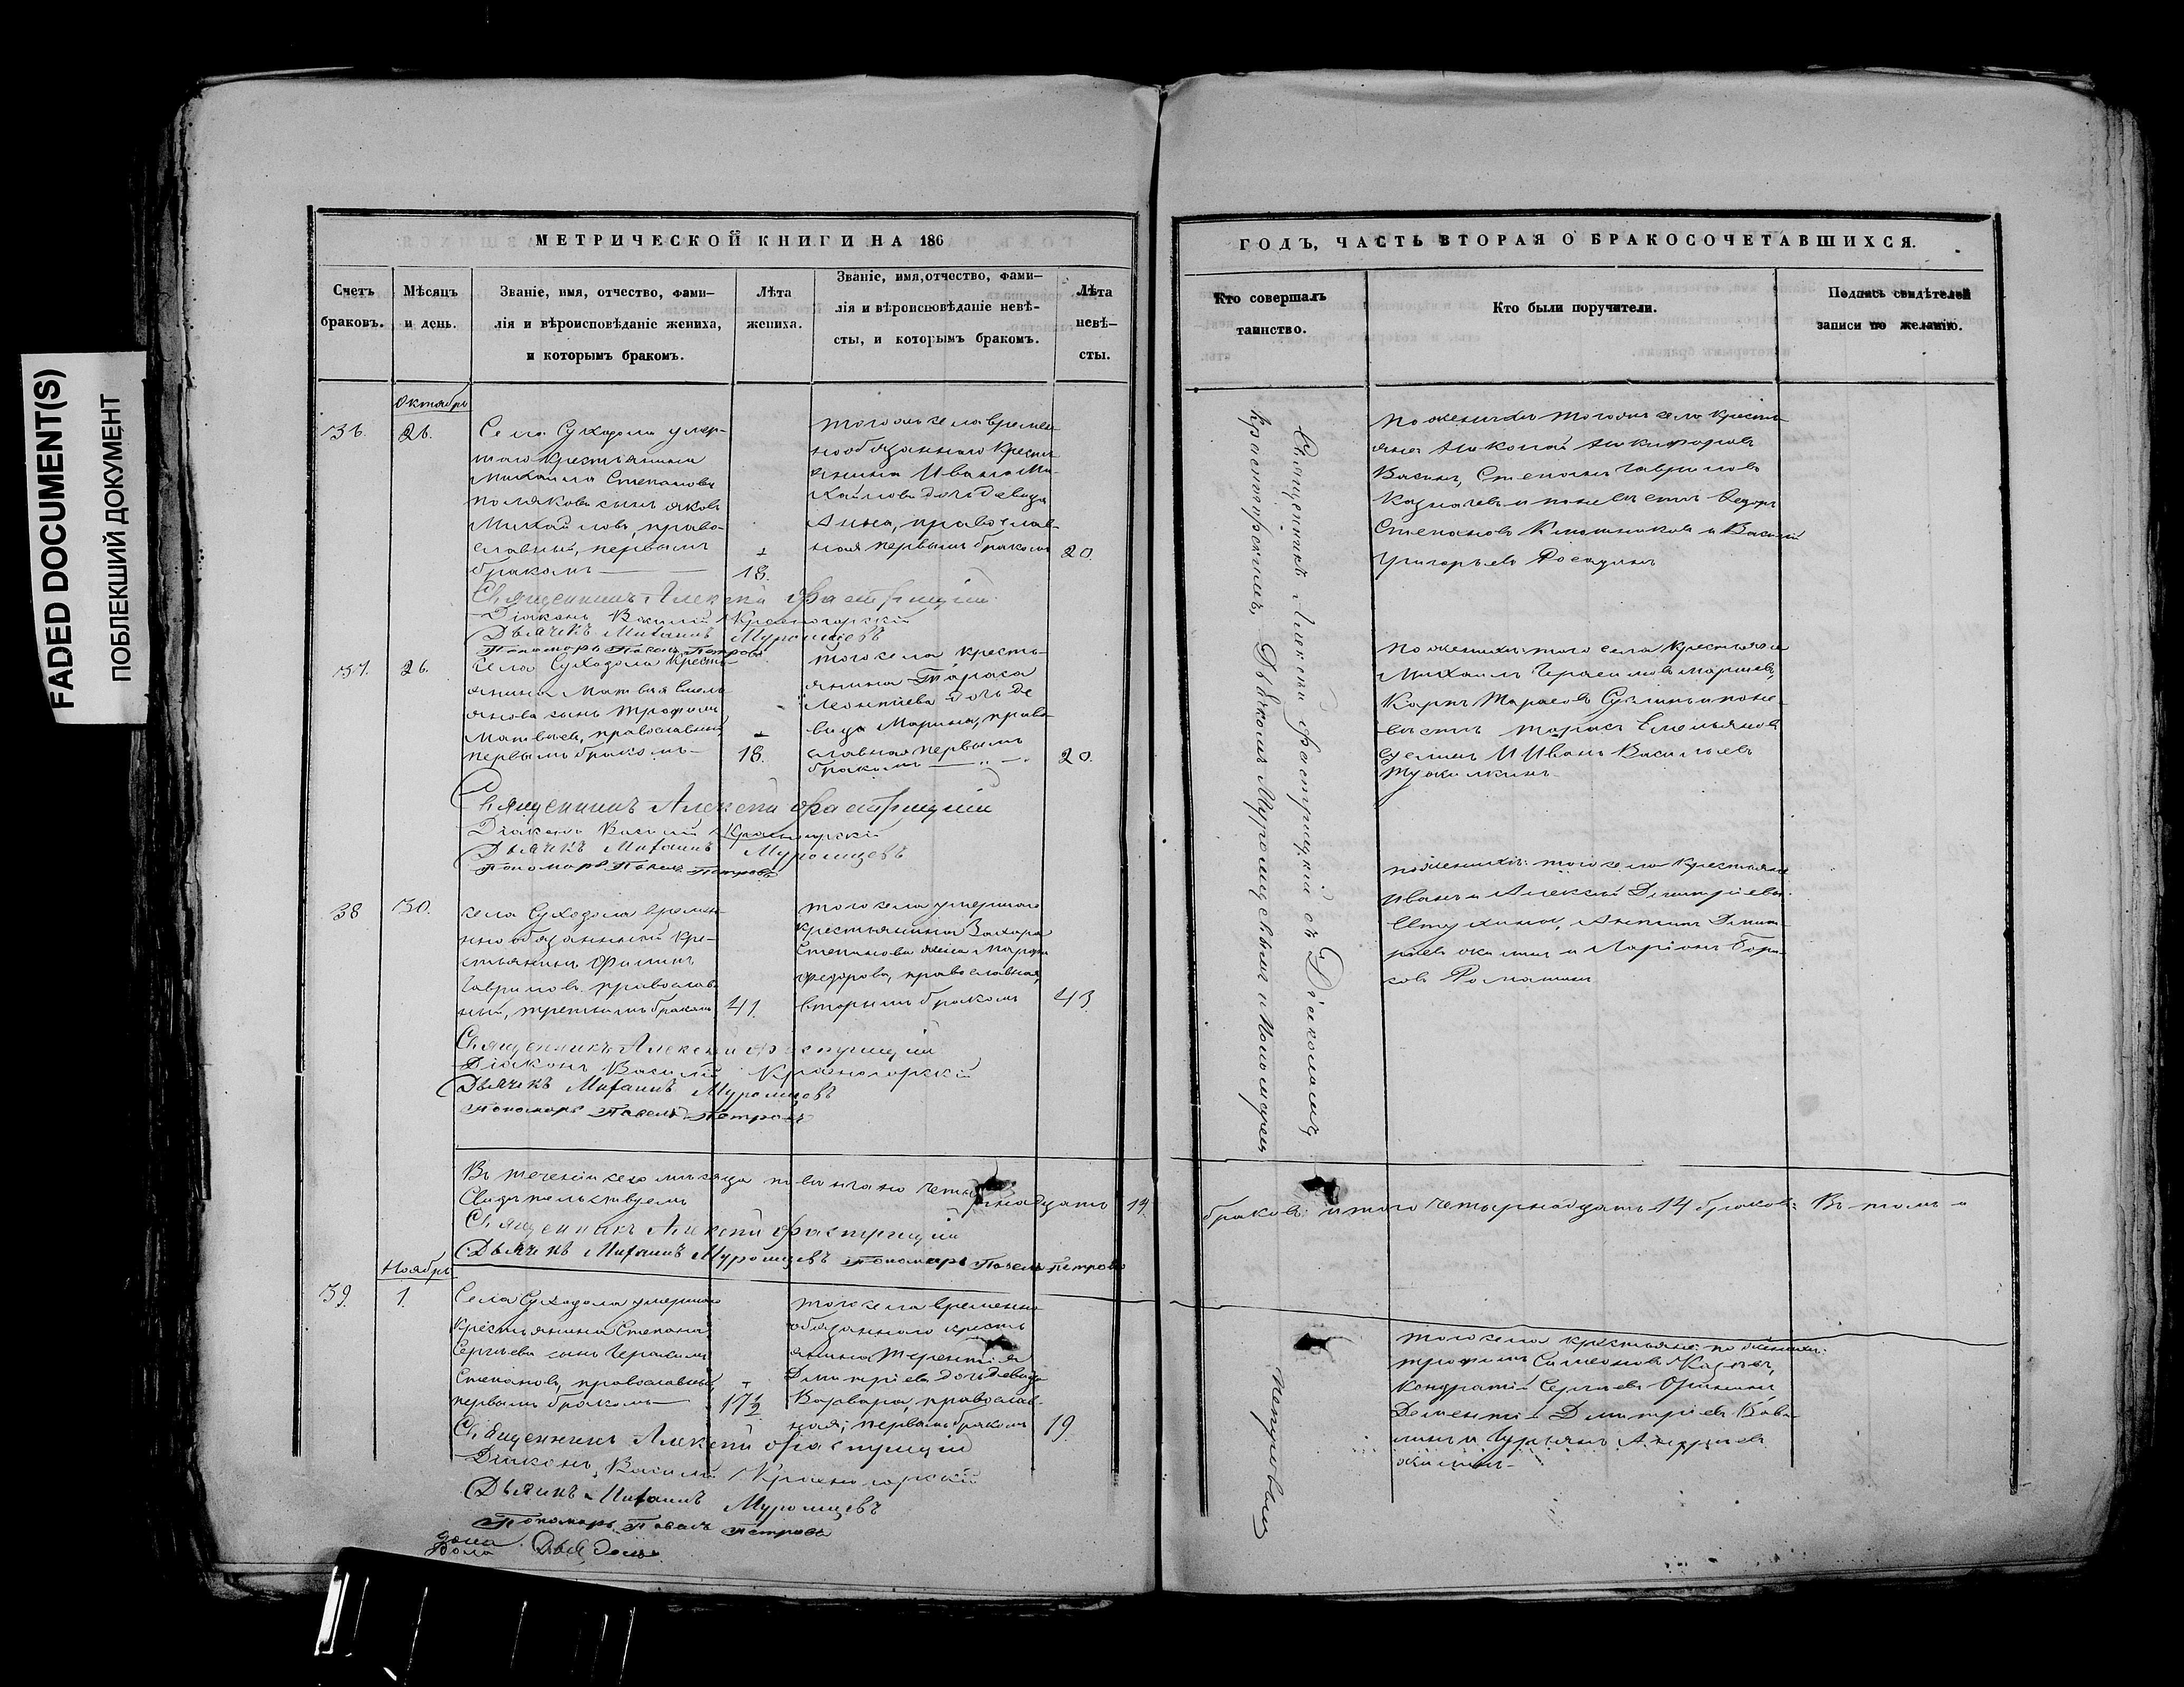 FADED DOCUMENT(S)
ПОБЛЕКШИЙ ДОКУМЕНТ
МЕТРИЧЕСКОЙ КНИГИ НА 186
Счетъ браковъ.
Мѣсяцъ и день.
Званіе, имя, отчество, фами-
лія и вѣроисповѣданіе жениха,
и которымъ бракомъ.
Лѣта жениха.
Званіе, имя, отчество, фами-
лія и вѣроисповѣданіе невѣ-
сты, и которымъ бракомъ.
Лѣта невѣ-
сты.
Октябрь
36.
26.
Села Суходола умер-
шаго крестьянина
Михаила Степанова
Полякова сынъ Яковъ
Михайловъ, право-
славный, первымъ
бракомъ
18.
тогожъ села времен-
нообязаннаго кресть
янина Ивана Ми-
хайлова дочь девица
Анна, православ-
ная первымъ бракомъ
20.
Священникъ Алексей
Діаконъ Василій Красногорскій
Дьячекъ Михаилъ Муромцевъ
Пономарь Павелъ Петровъ
37.
26.
Села Суходола кресть-
янина Матвея Емель-
янова сынъ Трофимъ
Матвеевъ, православный
первымъ бракомъ
18.
того села кресть-
янина Тараса
Леонтіева дочь де
вица Марина, право-
славная первымъ
бракомъ
20.
Священникъ Алексей
Діаконъ Василій Красногорскій
Дьячекъ Михаилъ Муромцевъ
Пономарь Павелъ Петровъ
38
30.
села Суходола времен-
нообязанный кре-
стьянинъ Филипъ
Гавриловъ православ-
ный, третьимъ бракомъ
41.
того села умершаго
крестьянина Захара
Степанова жена Марфа
Федорова, православная,
вторымъ бракомъ
43.
Священникъ Алексей
Діаконъ Василій Красногорскій
Дьячекъ Михаилъ Муромцевъ
Пономарь Павелъ Петровъ
Въ теченіи сего месяца повенчано четырнадцать 14
Свидетельствуемъ
Священникъ Алексей
Дьячекъ Михаилъ Муромцевъ Пономарь Павелъ Петровъ
Ноябрь
39.
1.
Села Суходола умершаго
крестьянина Степана
Сергеева сынъ Герасимъ
Степановъ, православный
первымъ бракомъ
17½
того села временно
обязаннаго кресть
янина Терентія
Димитріева дочь девица
Варвара, православ-
ная, первымъ бракомъ
19.
Священникъ Алексей
Діаконъ Василій Красногорскій
Дьячекъ Михаилъ Муромцевъ
Пономарь Павелъ Петровъ
ГОДЪ, ЧАСТЬ ВТОРАЯ О БРАКОСОЧЕТАВШИХСЯ.
Кто совершалъ
таинство.
Кто были поручители.
Подпись свидѣтелей
записи по желанію.
Священникъ Алексей съ Діакономъ
Красногорскимъ, Дьячкомъ Муромцевымъ и Пономаремъ
Петровымъ
По женихе тогожъ села кресть-
яне Николай Никифоровъ
Васинъ, Степанъ Гавриловъ
Казначеевъ и по невесте Федоръ
Степановъ Ключниковъ и Василій
Григорьевъ
По женихе: того села крестьяне
Михаилъ Герасимовъ
Карпъ Тарасовъ и по не-
весте Тарасъ Емельяновъ
и Иванъ Васильевъ
по женихе: того села крестьяне
Иванъ и Алексей Димитріевы
Антипъ Димит
ріевъ и Ларіонъ Бори-
совъ
браковъ: итого четырнадцать 14 браковъ: Въ томъ и
того села крестьяне по женихе:
Трофимъ Симеоновъ
Кондратій Сергеевъ
Дементій Димитріевъ